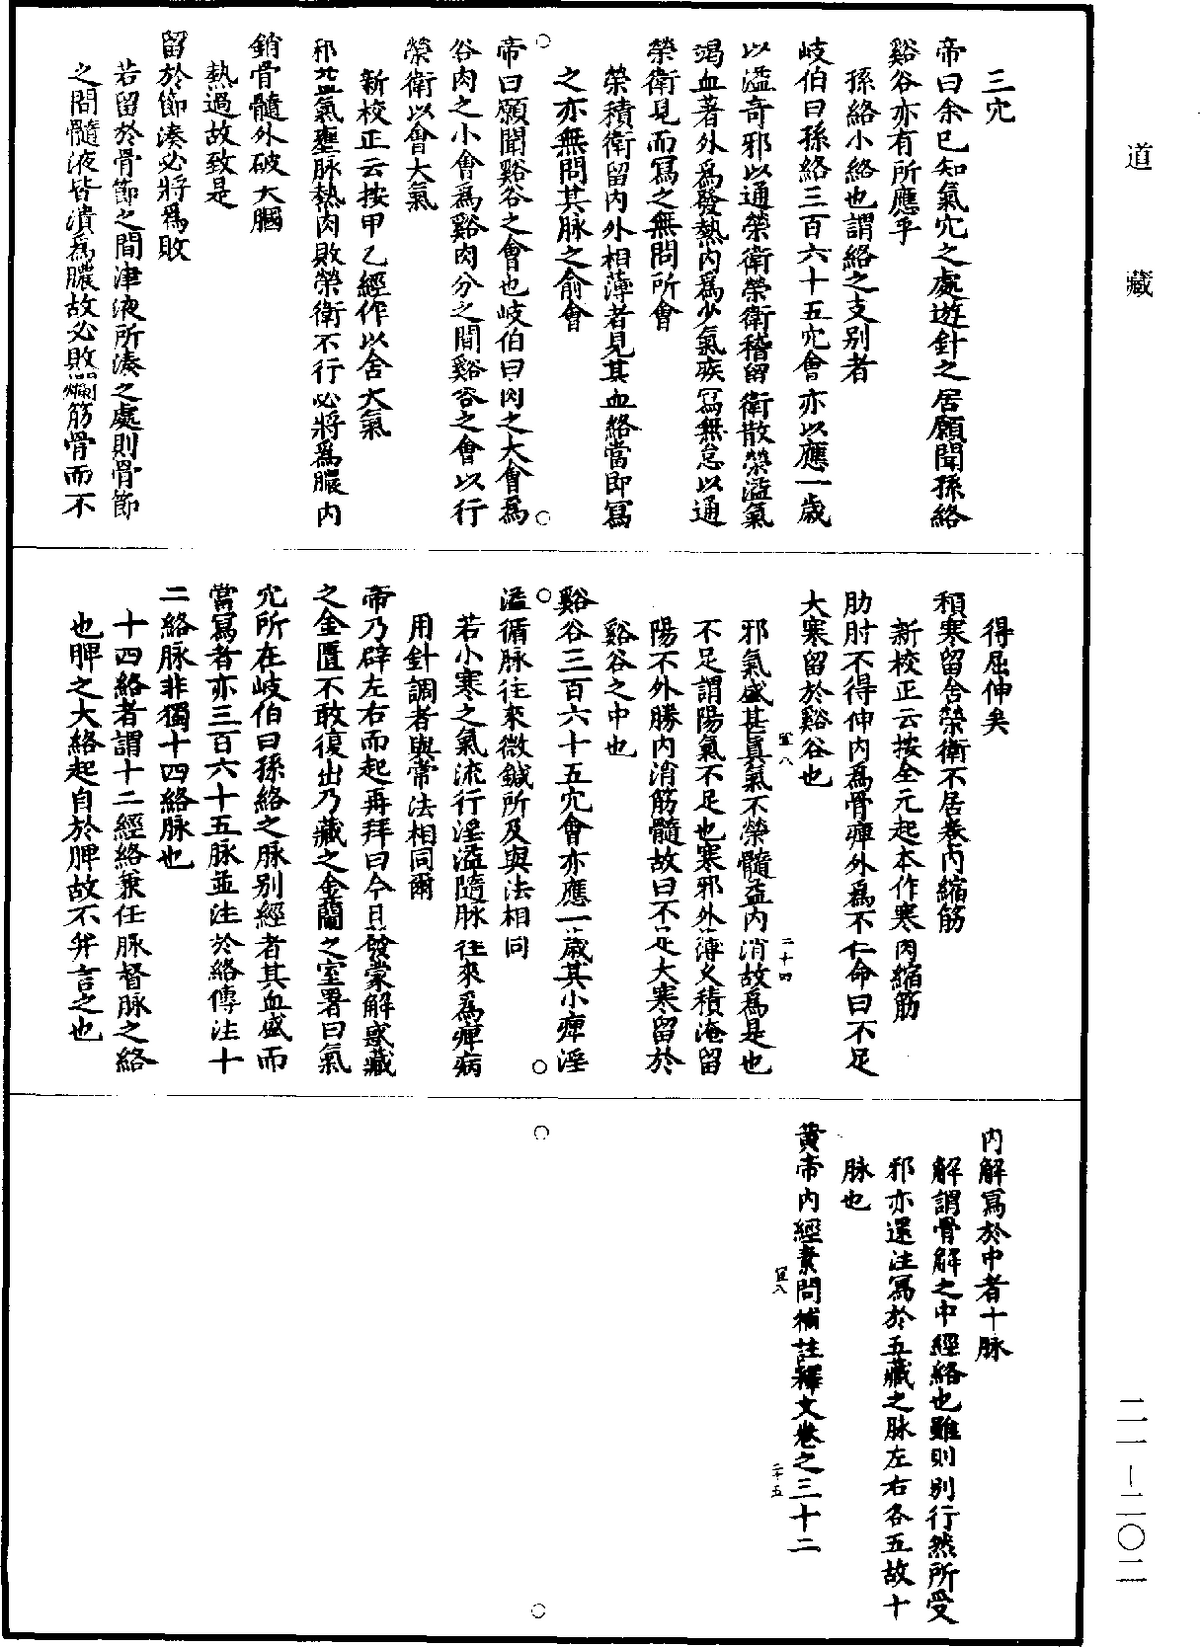 道藏
三穴
帝曰余已知氣穴之處遊針之居願聞孫絡
谿谷亦有所應乎
孫絡小絡也謂絡之支別者
岐伯曰孫絡三百六十五穴會亦以應一歲
以溢奇邪以通榮衛榮衛稽留衛散榮溢氣
竭血著外爲發熱內爲少氣疾寫無怠以通
榮衛見而寫之無問所會
榮積衛留內外相薄者見其血絡當即寫
之亦無問其脉之俞會
帝曰願聞谿谷之會也岐伯曰肉之大會爲
谷肉之小會爲谿肉分之間谿谷之會以行
榮衛以會大氣
新校正云按甲乙經作以舍大氣
邪益氣壅脉熱肉敗榮衛不行必將爲膿內
銷骨髓外破大膕
熱過故致是
留於節湊必將爲敗
若留於骨節之間津液所湊之處則骨節
之間髓液皆潰爲膿故必敗爛筋骨而不
得屈伸矣
積寒留舍榮衛不居卷肉縮筋
新校正云按全元起本作寒肉縮筋
肋肘不得伸內爲骨痺外爲不仁命曰不足
大寒留於谿谷也
邪氣盛甚眞氣不榮髓益內消故爲是也
不足謂陽氣不足也寒邪外薄久積淹留
陽不外勝內消筋髓故曰不足大寒留於
谿谷之中也
谿谷三百六十五穴會亦應一歲其小痺淫
溢循脉往來微鍼所及與法相同
若小寒之氣流行淫溢隨脉往來爲痺病
用針調者與常法相同爾
帝乃辟左右而起再拜曰今日發蒙解惑藏
之金匱不敢復出乃藏之金蘭之室署曰氣
穴所在岐伯曰孫絡之脉別經者其血盛而
當寫者亦三百六十五脉並注於絡傳注十
二絡脉非獨十四絡脉也
十四絡者謂十二經絡兼任脉督脉之絡
也脾之大絡起自於脾故不幷言之也
內解寫於中者十脉
解謂骨解之中經絡也雖則別行然所受
邪亦還注寫於五藏之脉左右各五故十
脉也
黃帝內經素問補註釋文卷之三十二
二一－二〇二